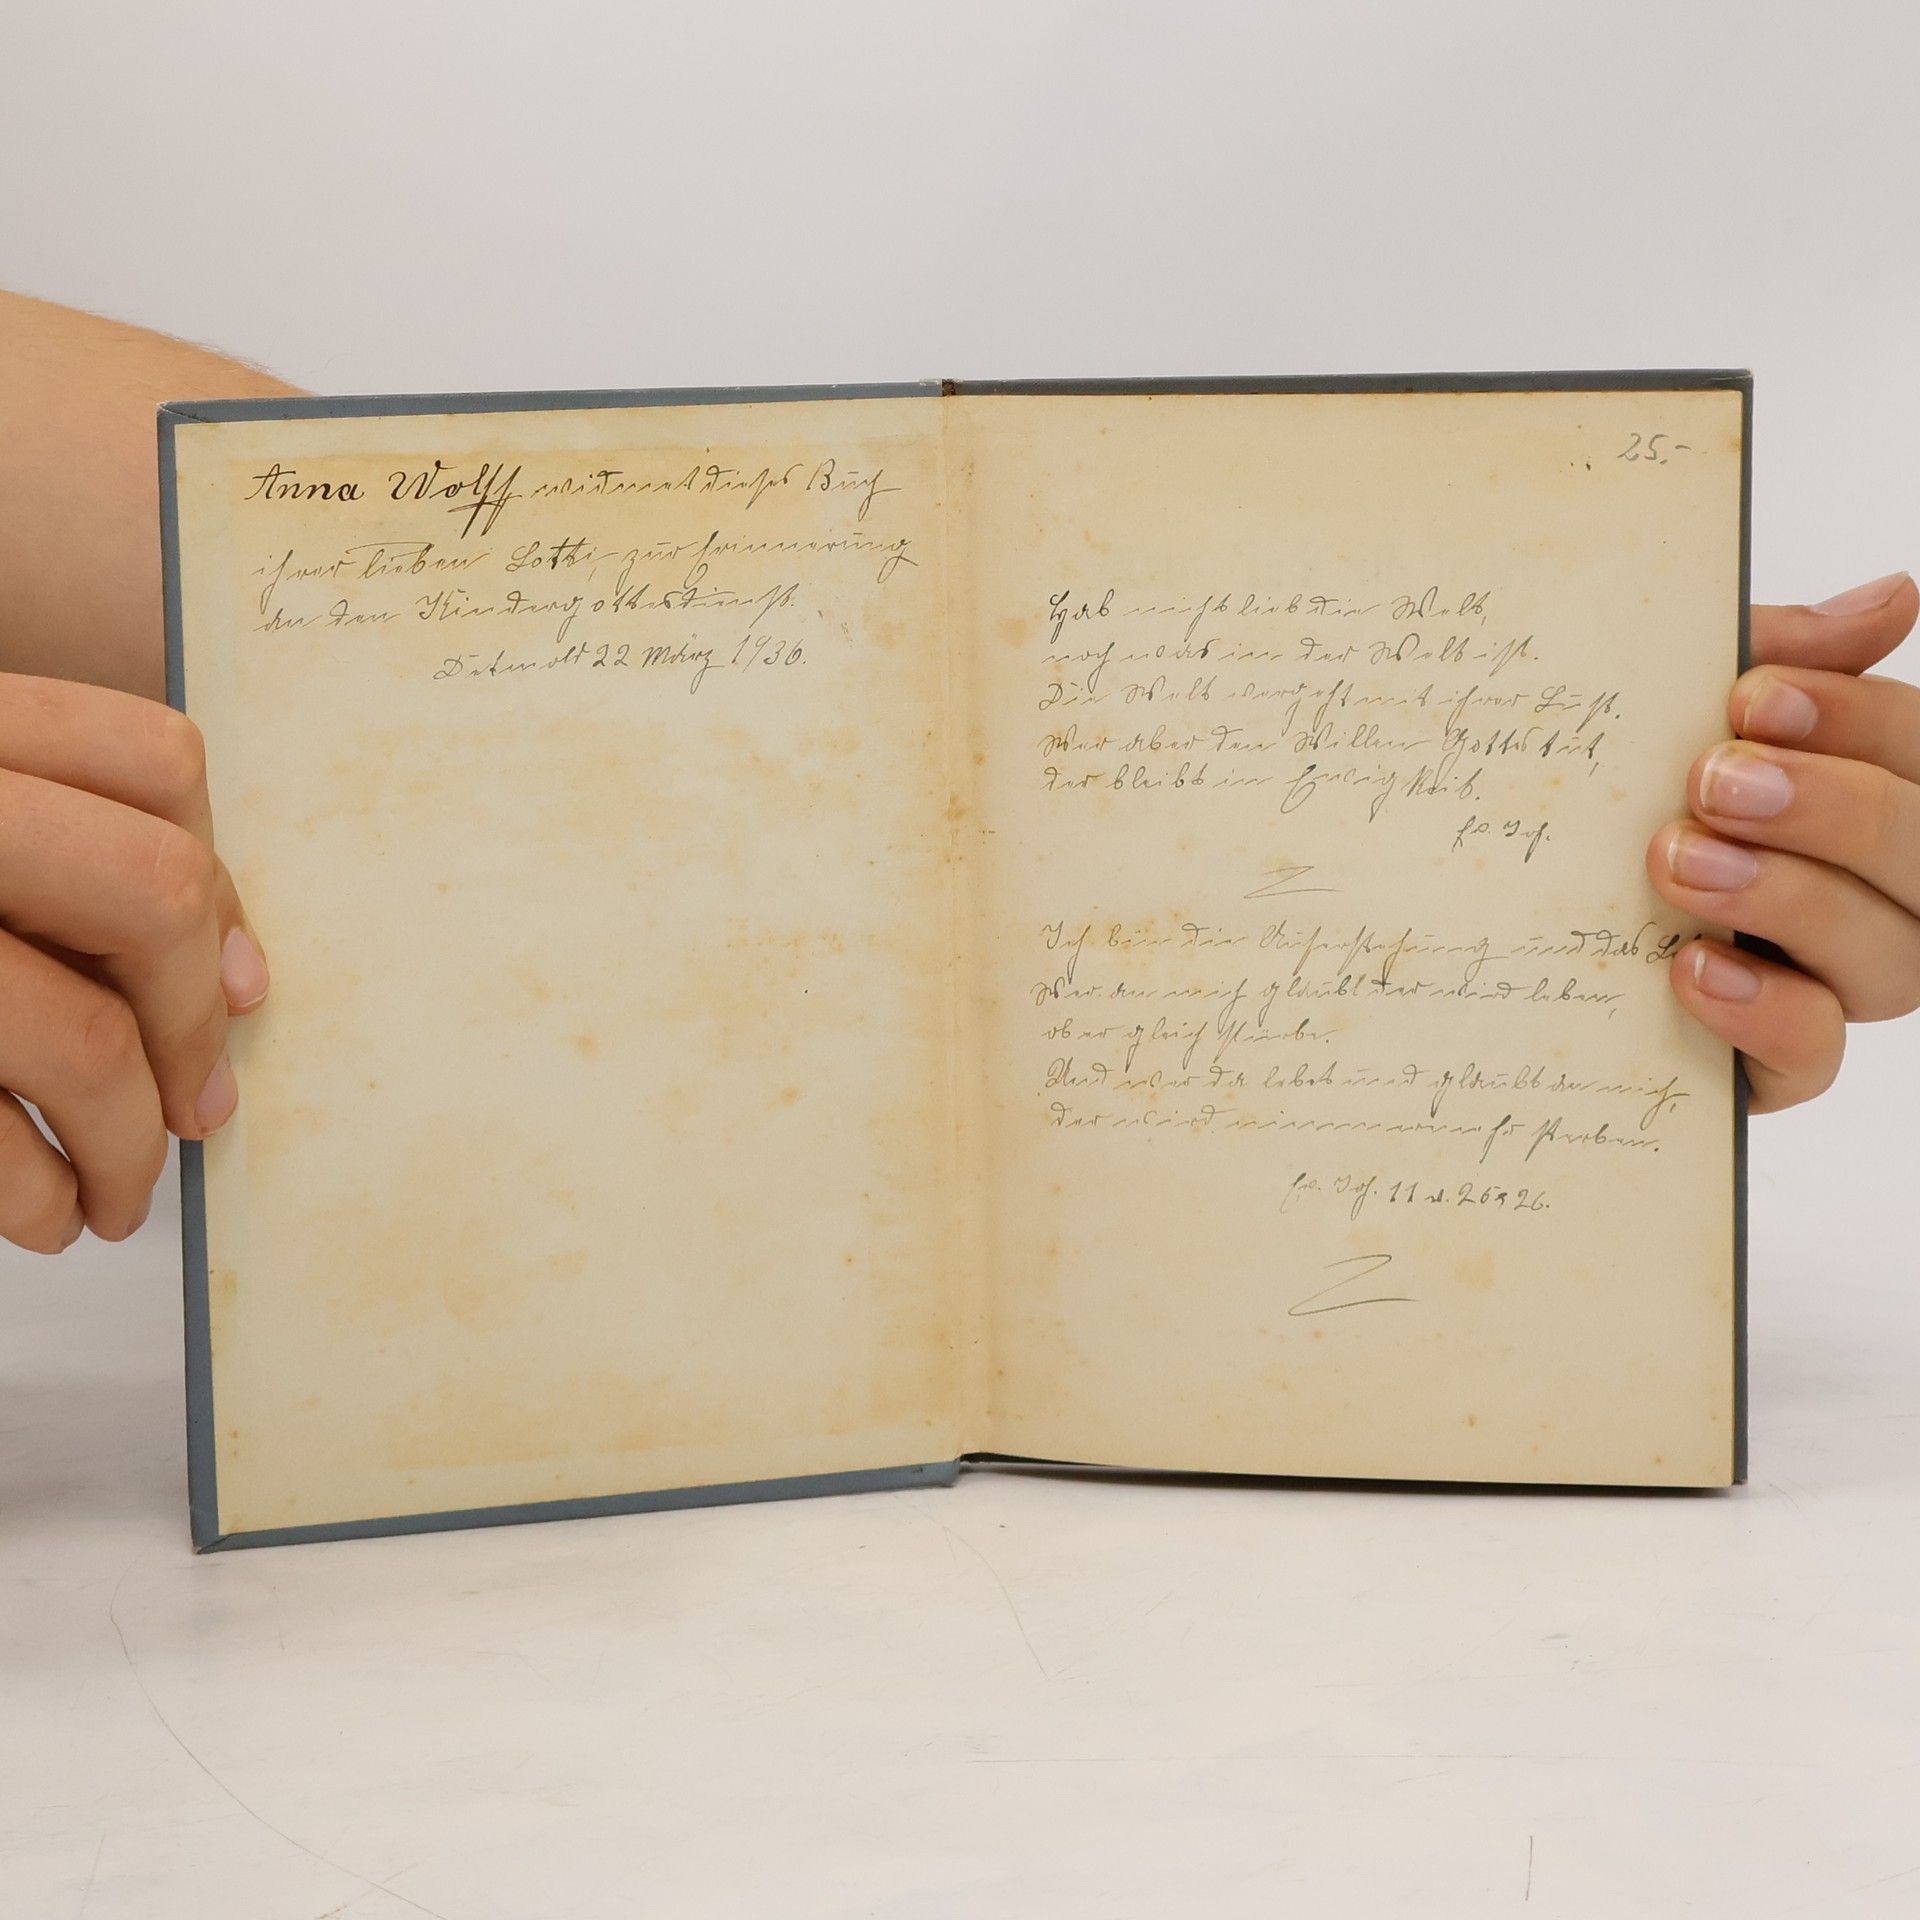 Anna Wolff widmet dieses Buch
ihrer lieben Lotti, zur Erinnerung
an den Kindergottesdienst.
Detmold 22 März 1936.
25.-
Hab nicht lieb die Welt,
noch was in der Welt ist.
Die Welt vergeht mit ihrer Lust.
Wer aber den Willen Gottes tut,
der bleibt in Ewigkeit.
Ev. Joh.
Ich bin die Auferstehung und das
Wer an mich glaubt der wird leben,
ob er gleich stürbe.
Und wer da lebet und glaubt an mich,
der wird nimmermehr sterben.
Ev. Joh. 11 v. 25 26.